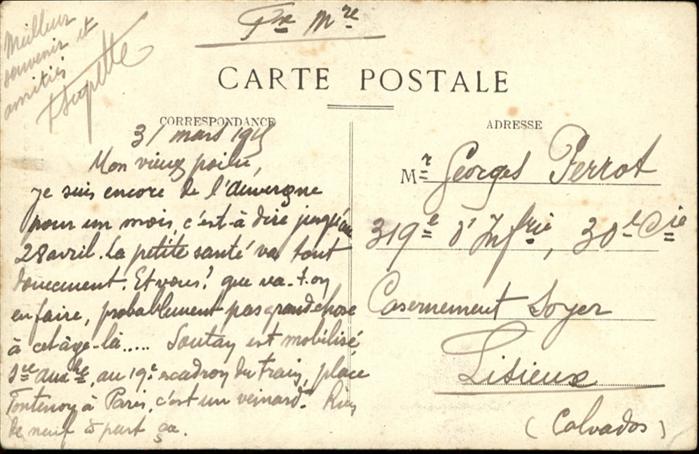 Fse Mre
Meilleur
souvenir et
amitiés
CARTE POSTALE
CORRESPONDANCE
ADRESSE
31 mars 1915
Mon vieux poilu,
je suis encore de l'Auvergne
pour un mois, c'est-à-dire jusqu'au
28 avril. La petite santé va tout
doucement. Et vous? que va-t-on
en faire, probablement pas grand chose
à cet âge-là..... Soutay est mobilisé
Sce auxre, au 19e escadron du train, place
Fontenoy à Paris, c'est un veinard. Rien
de neuf à part ça.
Mr Georges Perrot
319e d'Infrie, 30e Cie
Casernement Loyer
Lisieux
(Calvados)